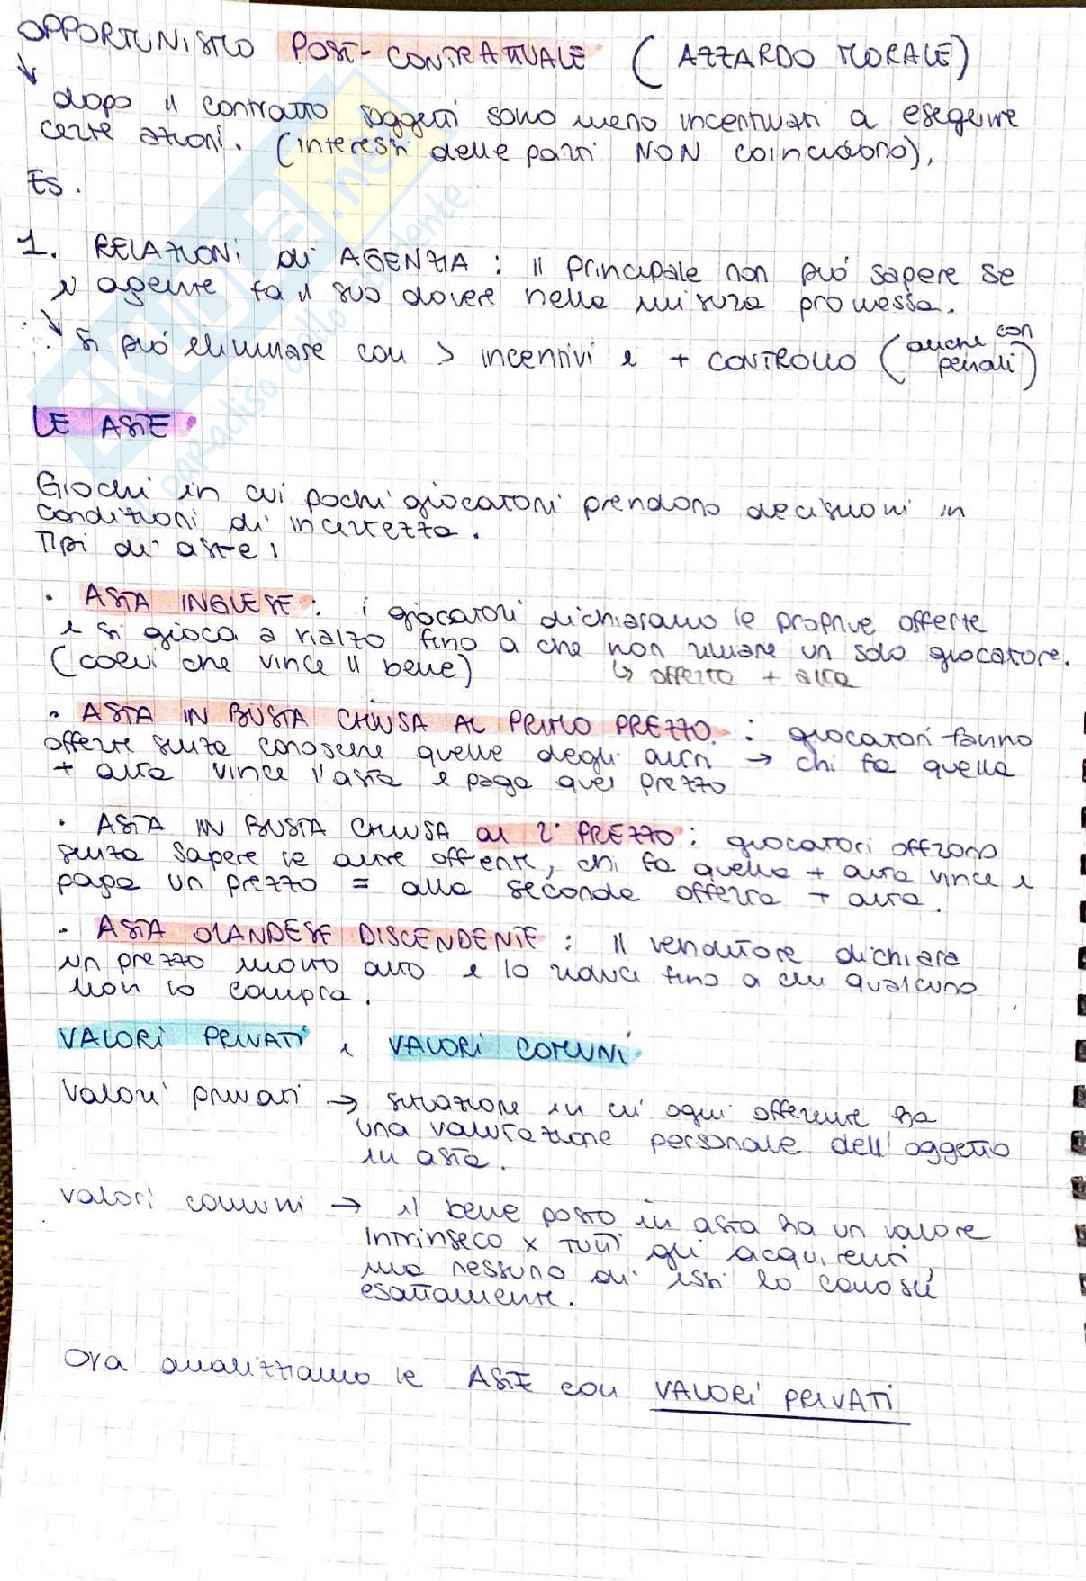 OPPORTUNISMO POST-CONTRATTUALE (AZZARDO MORALE)
↳ dopo il contratto soggetti sono meno incentivati a eseguire
certe azioni. (interessi delle parti NON coincidono).
ES.
1. RELAZIONI di AGENZIA: il principale non può sapere se
l'agente fa il suo dovere nella misura promessa.
↳ si può eliminare con > incentivi e + CONTROLLO (anche con
penali)
LE ASTE
Giochi in cui pochi giocatori prendono decisioni in
condizioni di incertezza.
Tipi di aste:
• ASTA INGLESE: i giocatori dichiarano le proprie offerte
e si gioca a rialzo fino a che non rimane un solo giocatore.
(colui che vince il bene) ↳ offerta + alta
• ASTA IN BUSTA CHIUSA AL PRIMO PREZZO: giocatori fanno
offerte senza conoscere quelle degli altri → chi fa quella
+ alta vince l'asta e paga quel prezzo
• ASTA IN BUSTA CHIUSA al 2° PREZZO: giocatori offrono
senza sapere le altre offerte, chi fa quella + alta vince e
paga un prezzo = alla seconda offerta + alta.
• ASTA OLANDESE DISCENDENTE: il venditore dichiara
un prezzo molto alto e lo riduce fino a che qualcuno
non lo compra.
VALORI PRIVATI e VALORI COMUNI
Valori privati → situazione in cui ogni offerente ha
una valutazione personale dell'oggetto
in asta.
valori comuni → il bene posto in asta ha un valore
intrinseco x tutti gli acquirenti,
ma nessuno di essi lo conosce
esattamente.
Ora analizziamo le ASTE con VALORI PRIVATI